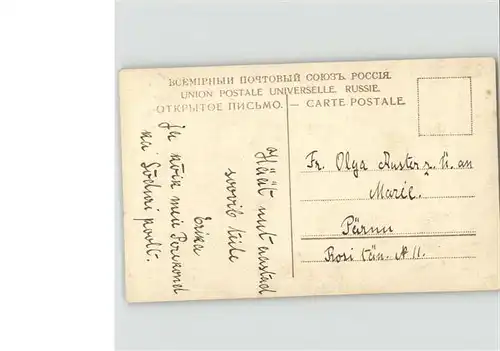 ВСЕМІРНЫЙ ПОЧТОВЫЙ СОЮЗЪ. РОССІЯ.
UNION POSTALE UNIVERSELLE. RUSSIE.
ОТКРЫТОЕ ПИСЬМО. — CARTE POSTALE.
Hääd uut aastad
soovib teile
Erika
Ja kõik meie Perekond
ka Sõduri poolt.
Fr. Olga Auster
Marie.
Pärnu
Rosi tän. № 11.